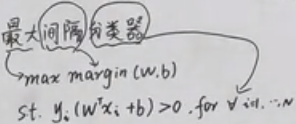 最大间隔分类器
max margin (w.b)
s.t. yᵢ(wᵀxᵢ+b)>0 , for ∀ i=1, ⋯, N